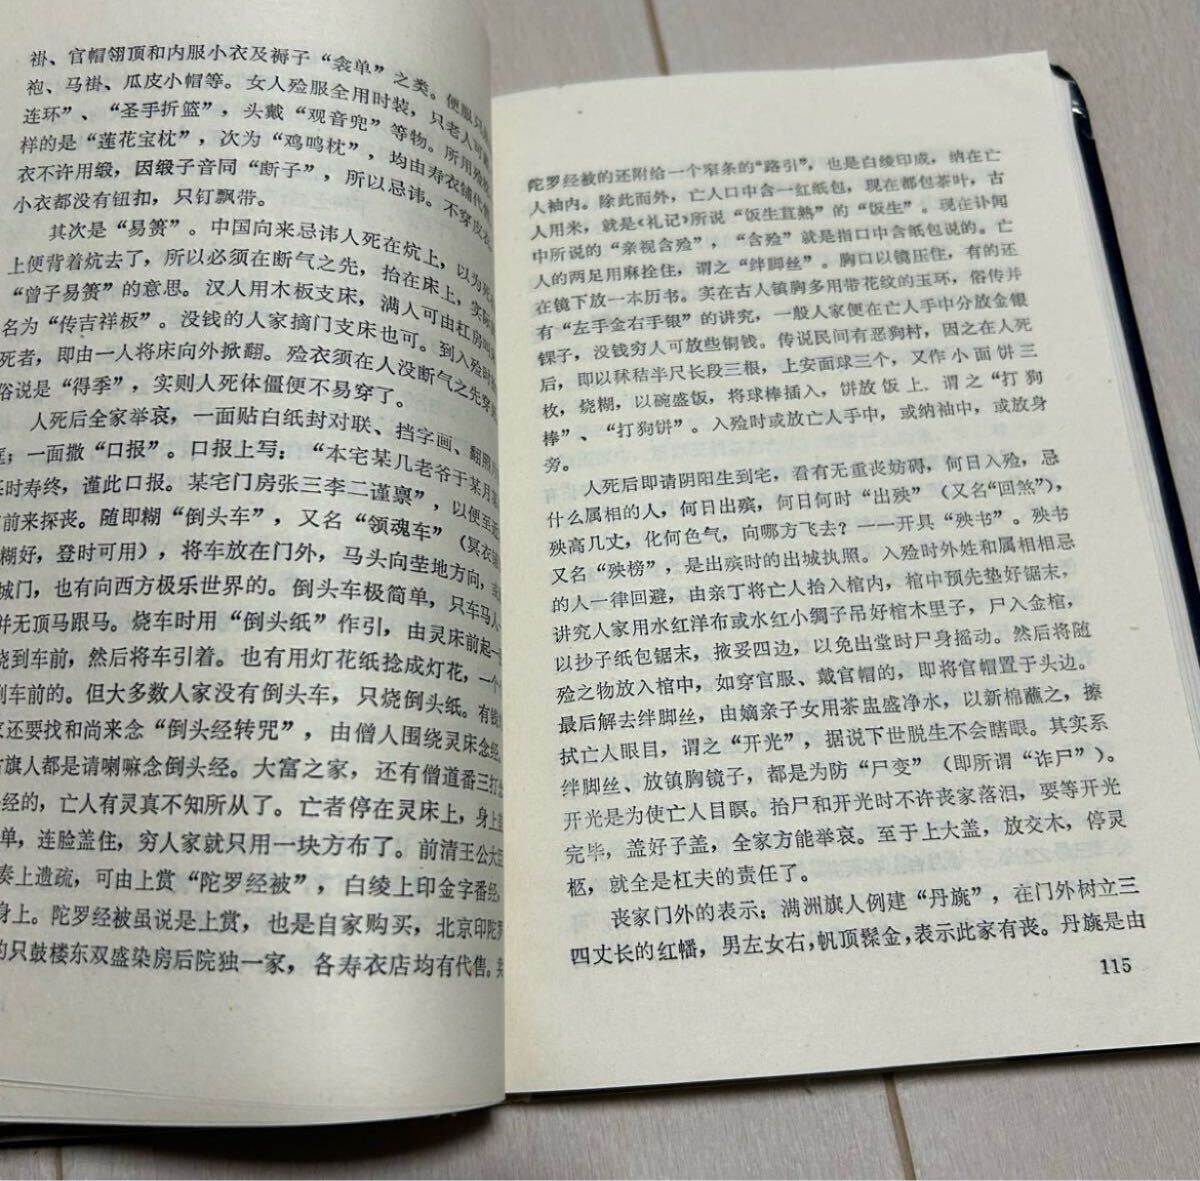 褂、官帽翎顶和内服小衣及褥子“衾单”之类。便服只
袍、马褂、瓜皮小帽等。女人殓服全用时装，只老人可戴
连环”、“圣手折篮”，头戴“观音兜”等物。所用殓
样的是“莲花宝枕”，次为“鸡鸣枕”，均由寿衣铺代售
衣不许用缎，因缎子音同“断子”，所以忌讳。不穿皮衣
小衣都没有钮扣，只钉飘带。
其次是“易箦”。中国向来忌讳人死在炕上，以为死
上便背着炕去了，所以必须在断气之先，抬在床上，实际
“曾子易箦”的意思。汉人用木板支床，满人可由杠房
名为“传吉祥板”。没钱的人家摘门支床也可。到入殓时
死者，即由一人将床向外掀翻。殓衣须在人没断气之先穿
俗说是“得季”，实则人死体僵便不易穿了。
人死后全家举哀，一面贴白纸封对联、挡字画、翻照
；一面撒“口报”。口报上写：“本宅某几老爷于某月某
时寿终，谨此口报。某宅门房张三李二谨禀”，以便至
前来探丧。随即糊“倒头车”，又名“领魂车”（冥衣
糊好，登时可用），将车放在门外，马头向茔地方向，或
城门，也有向西方极乐世界的。倒头车极简单，只车马人
并无顶马跟马。烧车时用“倒头纸”作引，由灵床前起一
烧到车前，然后将车引着。也有用灯花纸捻成灯花，一个
到车前的。但大多数人家没有倒头车，只烧倒头纸。有钱
家还要找和尚来念“倒头经转咒”，由僧人围绕灵床念经
旗人都是请喇嘛念倒头经。大富之家，还有僧道番三打
经的，亡人有灵真不知所从了。亡者停在灵床上，身上盖
单，连脸盖住，穷人家就只用一块方布了。前清王公大臣
奏上遗疏，可由上赏“陀罗经被”，白绫上印金字番经
身上。陀罗经被虽说是上赏，也是自家购买，北京印陀罗
的只鼓楼东双盛染房后院独一家，各寿衣店均有代售。
陀罗经被的还附给一个窄条的“路引”，也是白绫印成，纳在亡
人袖内。除此而外，亡人口中含一红纸包，现在都包茶叶，古
人用米，就是《礼记》所说“饭生苴熟”的“饭生”。现在讣闻
中所说的“亲视含殓”，“含殓”就是指口中含纸包说的。亡
人的两足用麻拴住，谓之“绊脚丝”。胸口以镜压住，有的还
在镜下放一本历书。实在古人镇胸多用带花纹的玉环，俗传并
有“左手金右手银”的讲究，一般人家便在亡人手中分放金银
锞子，没钱穷人可放些铜钱。传说民间有恶狗村，因之在人死
后，即以秫秸半尺长段三根，上安面球三个，又作小面饼三
枚，烧糊，以碗盛饭，将球棒插入，饼放饭上，谓之“打狗
棒”、“打狗饼”。入殓时或放亡人手中，或纳袖中，或放身
旁。
人死后即请阴阳生到宅，看有无重丧妨碍，何日入殓，忌
什么属相的人，何日出殡，何日何时“出殃”（又名“回煞”），
殃高几丈，化何色气，向哪方飞去？——开具“殃书”。殃书
又名“殃榜”，是出殡时的出城执照。入殓时外姓和属相相忌
的人一律回避，由亲丁将亡人抬入棺内，棺中预先垫好锯末，
讲究人家用水红洋布或水红小绸子吊好棺木里子，尸入金棺，
以抄子纸包锯末，掖妥四边，以免出堂时尸身摇动。然后将随
殓之物放入棺中，如穿官服、戴官帽的，即将官帽置于头边。
最后解去绊脚丝，由嫡亲子女用茶盅盛净水，以新棉蘸之，擦
拭亡人眼目，谓之“开光”，据说下世脱生不会瞎眼。其实系
绊脚丝、放镇胸镜子，都是为防“尸变”（即所谓“诈尸”）。
开光是为使亡人目瞑。抬尸和开光时不许丧家落泪，要等开光
完毕，盖好子盖，全家方能举哀。至于上大盖，放交木，停灵
柩，就全是杠夫的责任了。
丧家门外的表示：满洲旗人例建“丹旐”，在门外树立三
四丈长的红幡，男左女右，帆顶髹金，表示此家有丧。丹旐是由
115